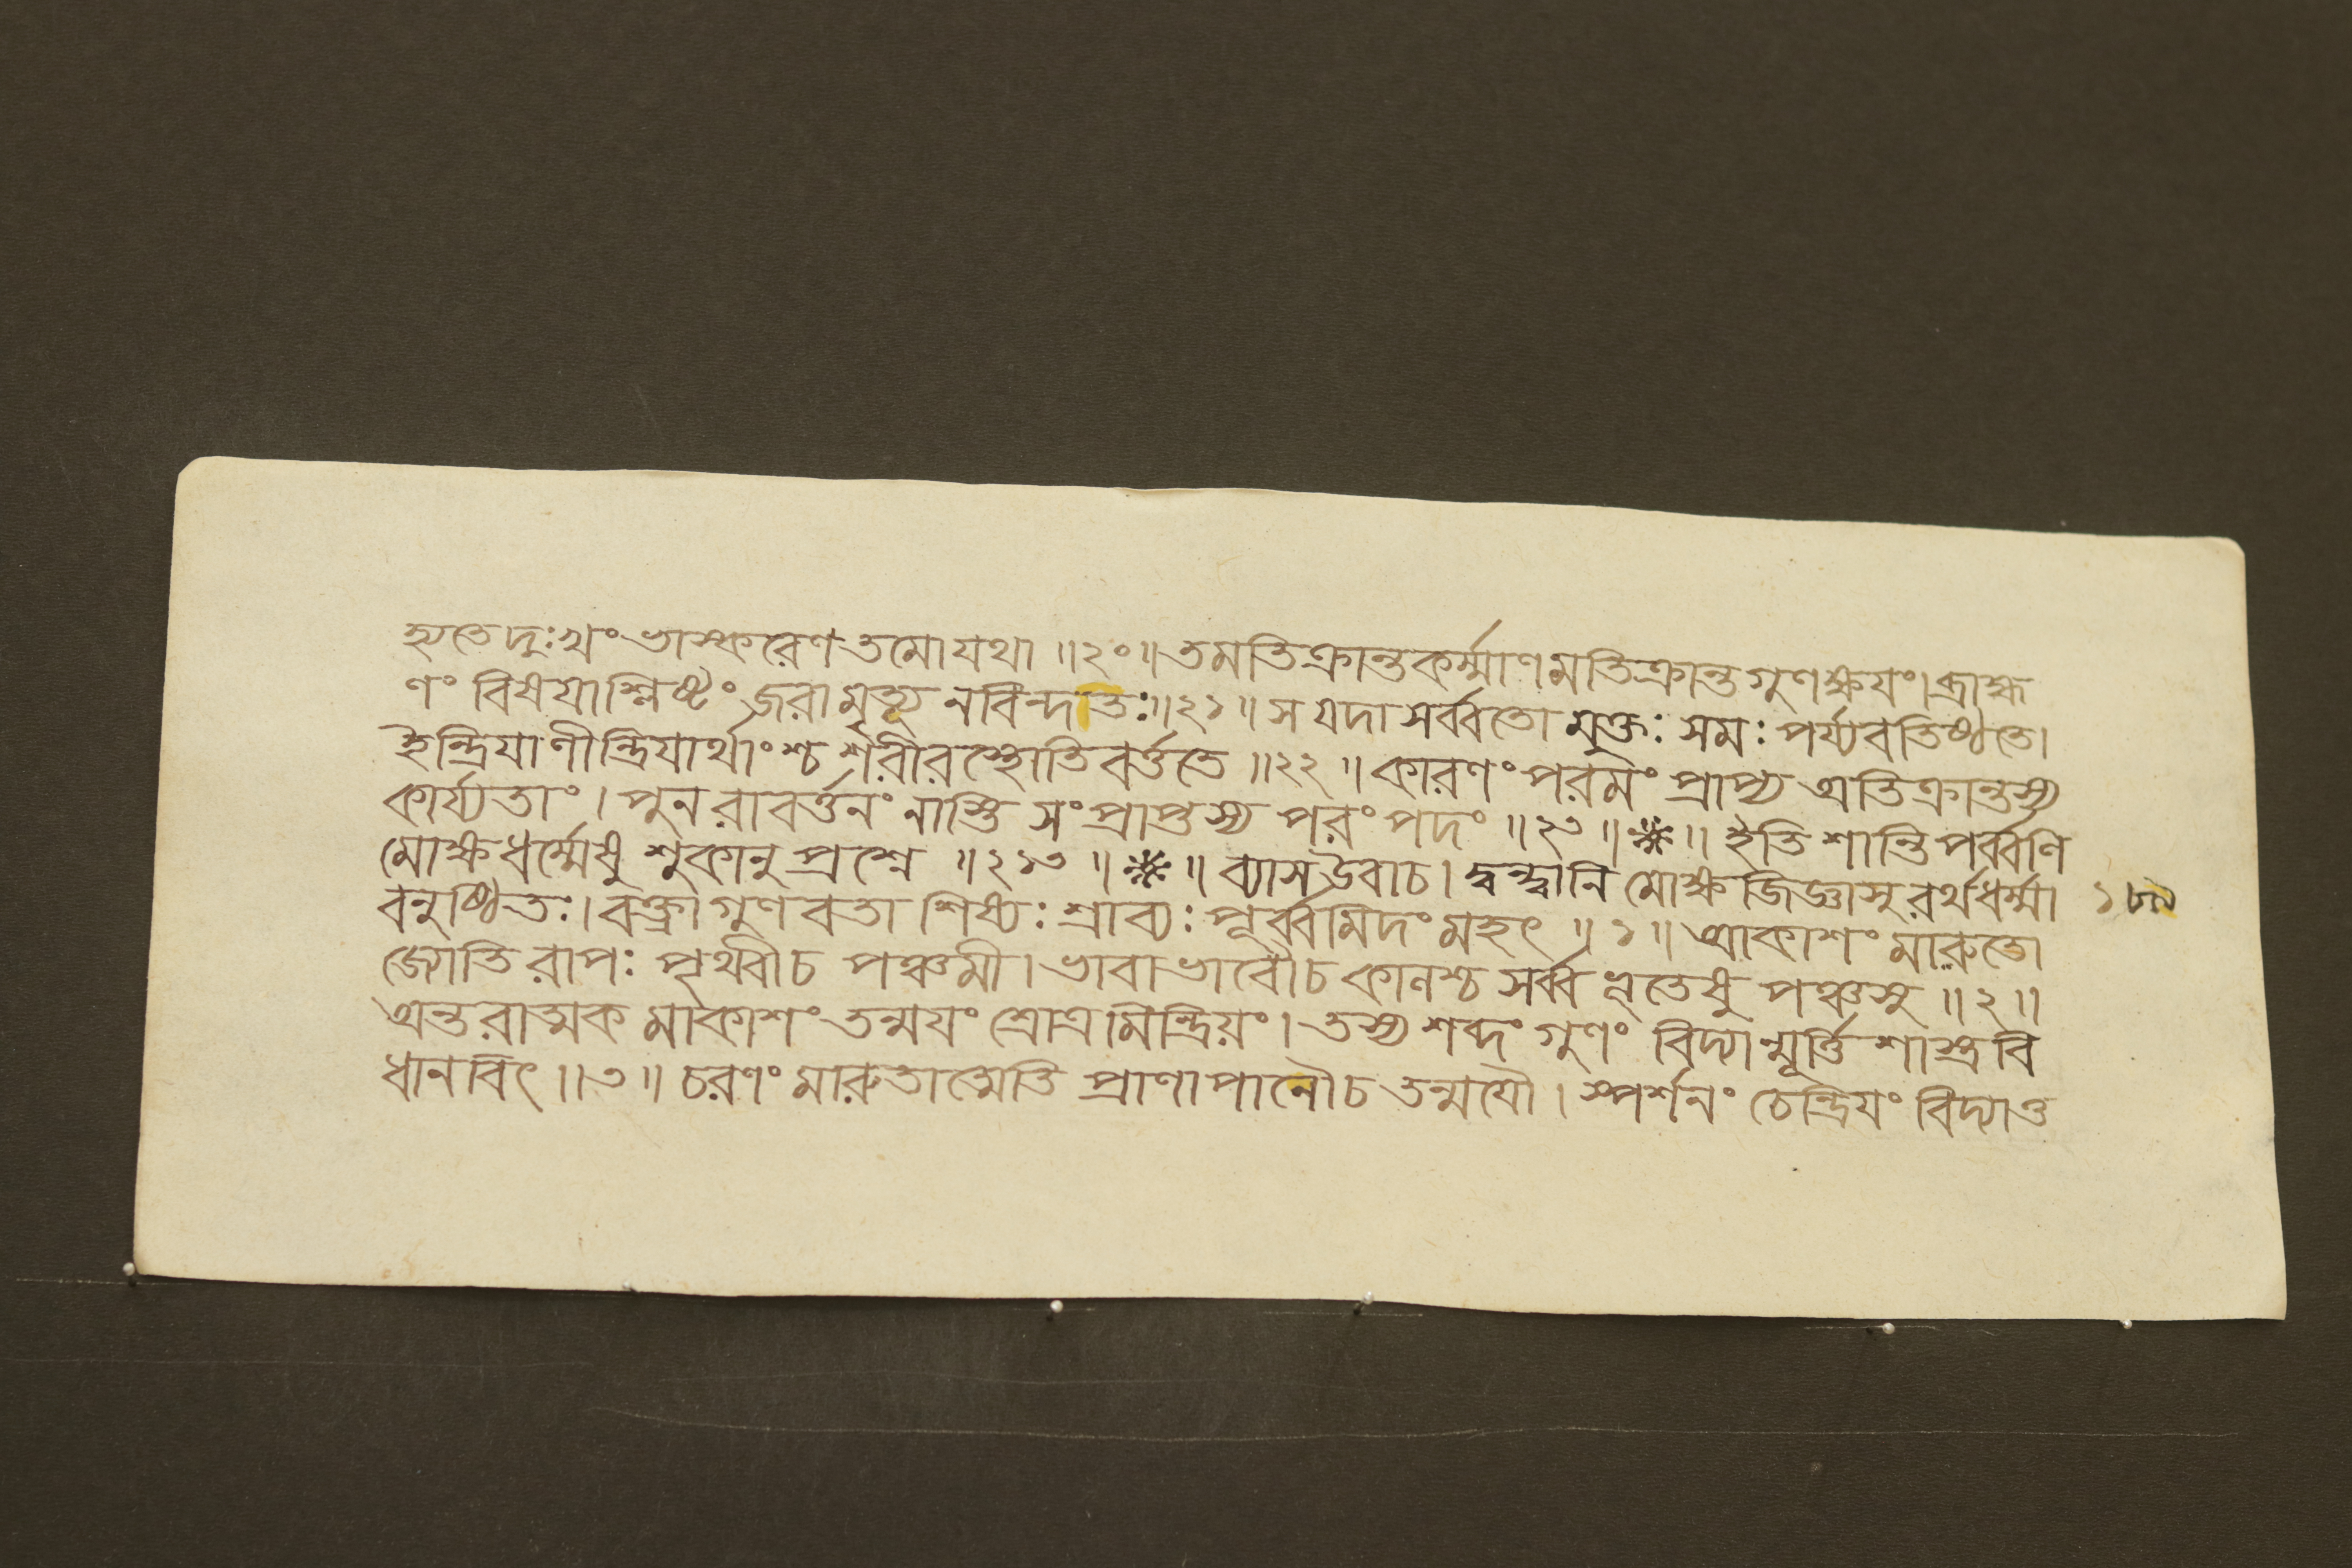 হ্যতে দুঃখং ভাস্করেণ তমো যথা ॥২০॥ তমতিক্রান্তকর্ম্মাণমতিক্রান্তগুণক্ষয়ং। ব্রাহ্ম
ণং বিষয়াশ্লিষ্টং জরামৃত্যূ ন বিন্দতঃ॥২১॥ স যদা সর্ব্বতো মুক্তঃ সমঃ পর্য্যবতিষ্ঠতে।
ইন্দ্রিয়াণীন্দ্রিয়ার্থাংশ্চ শরীরস্থোতিবর্ত্ততে ॥২২॥ কারণং পরমং প্রাপ্য অতিক্রান্তস্য
কার্য্যতাং। পুনরাবর্ত্তনং নাস্তি সংপ্রাপ্তস্য পরং পদং ॥২৩॥※॥ ইতি শান্তিপর্ব্বণি
মোক্ষধর্ম্মেষু শুকানুপ্রশ্নে ॥২১৩॥※॥ ব্যাস উবাচ। দ্বন্দ্বানি মোক্ষজিজ্ঞাসুরর্থধর্ম্মা
বনুষ্ঠিতঃ। বক্ত্রা গুণবতা শিষ্যঃ শ্রাব্যঃ পূর্ব্বমিদং মহৎ ॥১॥ আকাশং মারুতো
জ্যোতিরাপঃ পৃথ্বী চ পঞ্চমী। ভাবাভাবৌ চ কালশ্চ সর্ব্বভূতেষু পঞ্চসু ॥২॥
অন্তরাত্মকমাকাশং তন্ময়ং শ্রোত্রমিন্দ্রিয়ং। তস্য শব্দং গুণং বিদ্যান্মূর্ত্তিশাস্ত্রবি
ধানবিৎ ॥৩॥ চরণং মারুতাত্মেতি প্রাণাপানৌ চ তন্ময়ৌ। স্পর্শনং চেন্দ্রিয়ং বিদ্যাত্ত